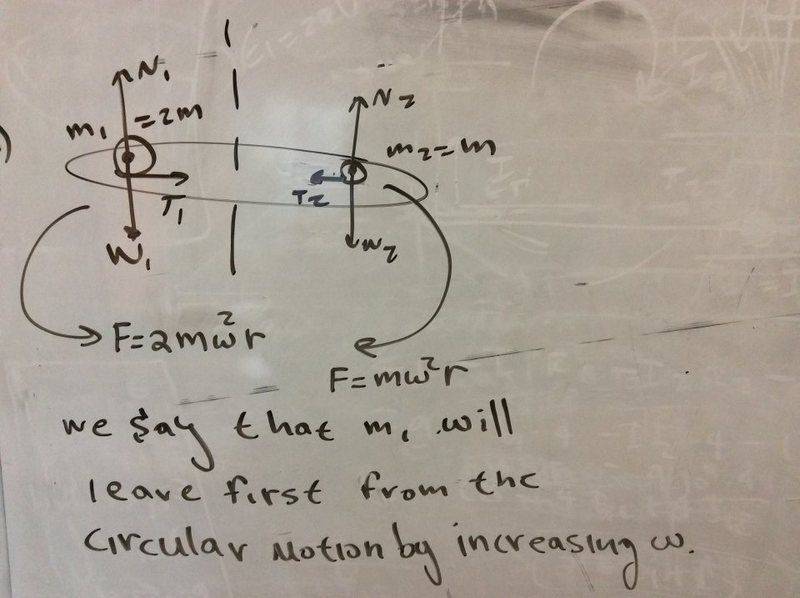 N₁
m₁ = 2m
T₁
W₁
N₂
m₂ = m
T₂
W₂
F = 2mω²r
F = mω²r
we say that m₁ will
leave first from the
circular motion by increasing ω.